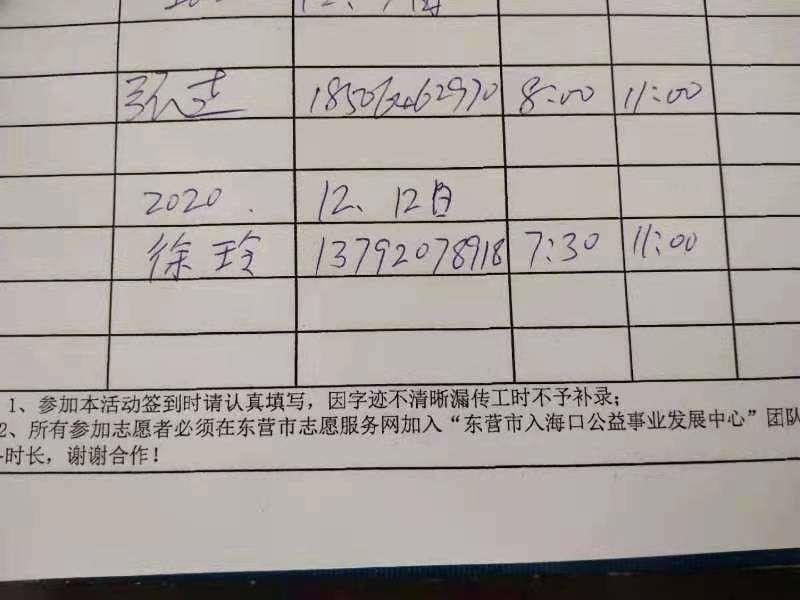 8:00 11:00
2020. 12、12日
徐玲 13792078918 7:30 11:00
1、参加本活动签到时请认真填写，因字迹不清晰漏传工时不予补录；
2、所有参加志愿者必须在东营市志愿服务网加入“东营市入海口公益事业发展中心”团队
时长，谢谢合作！